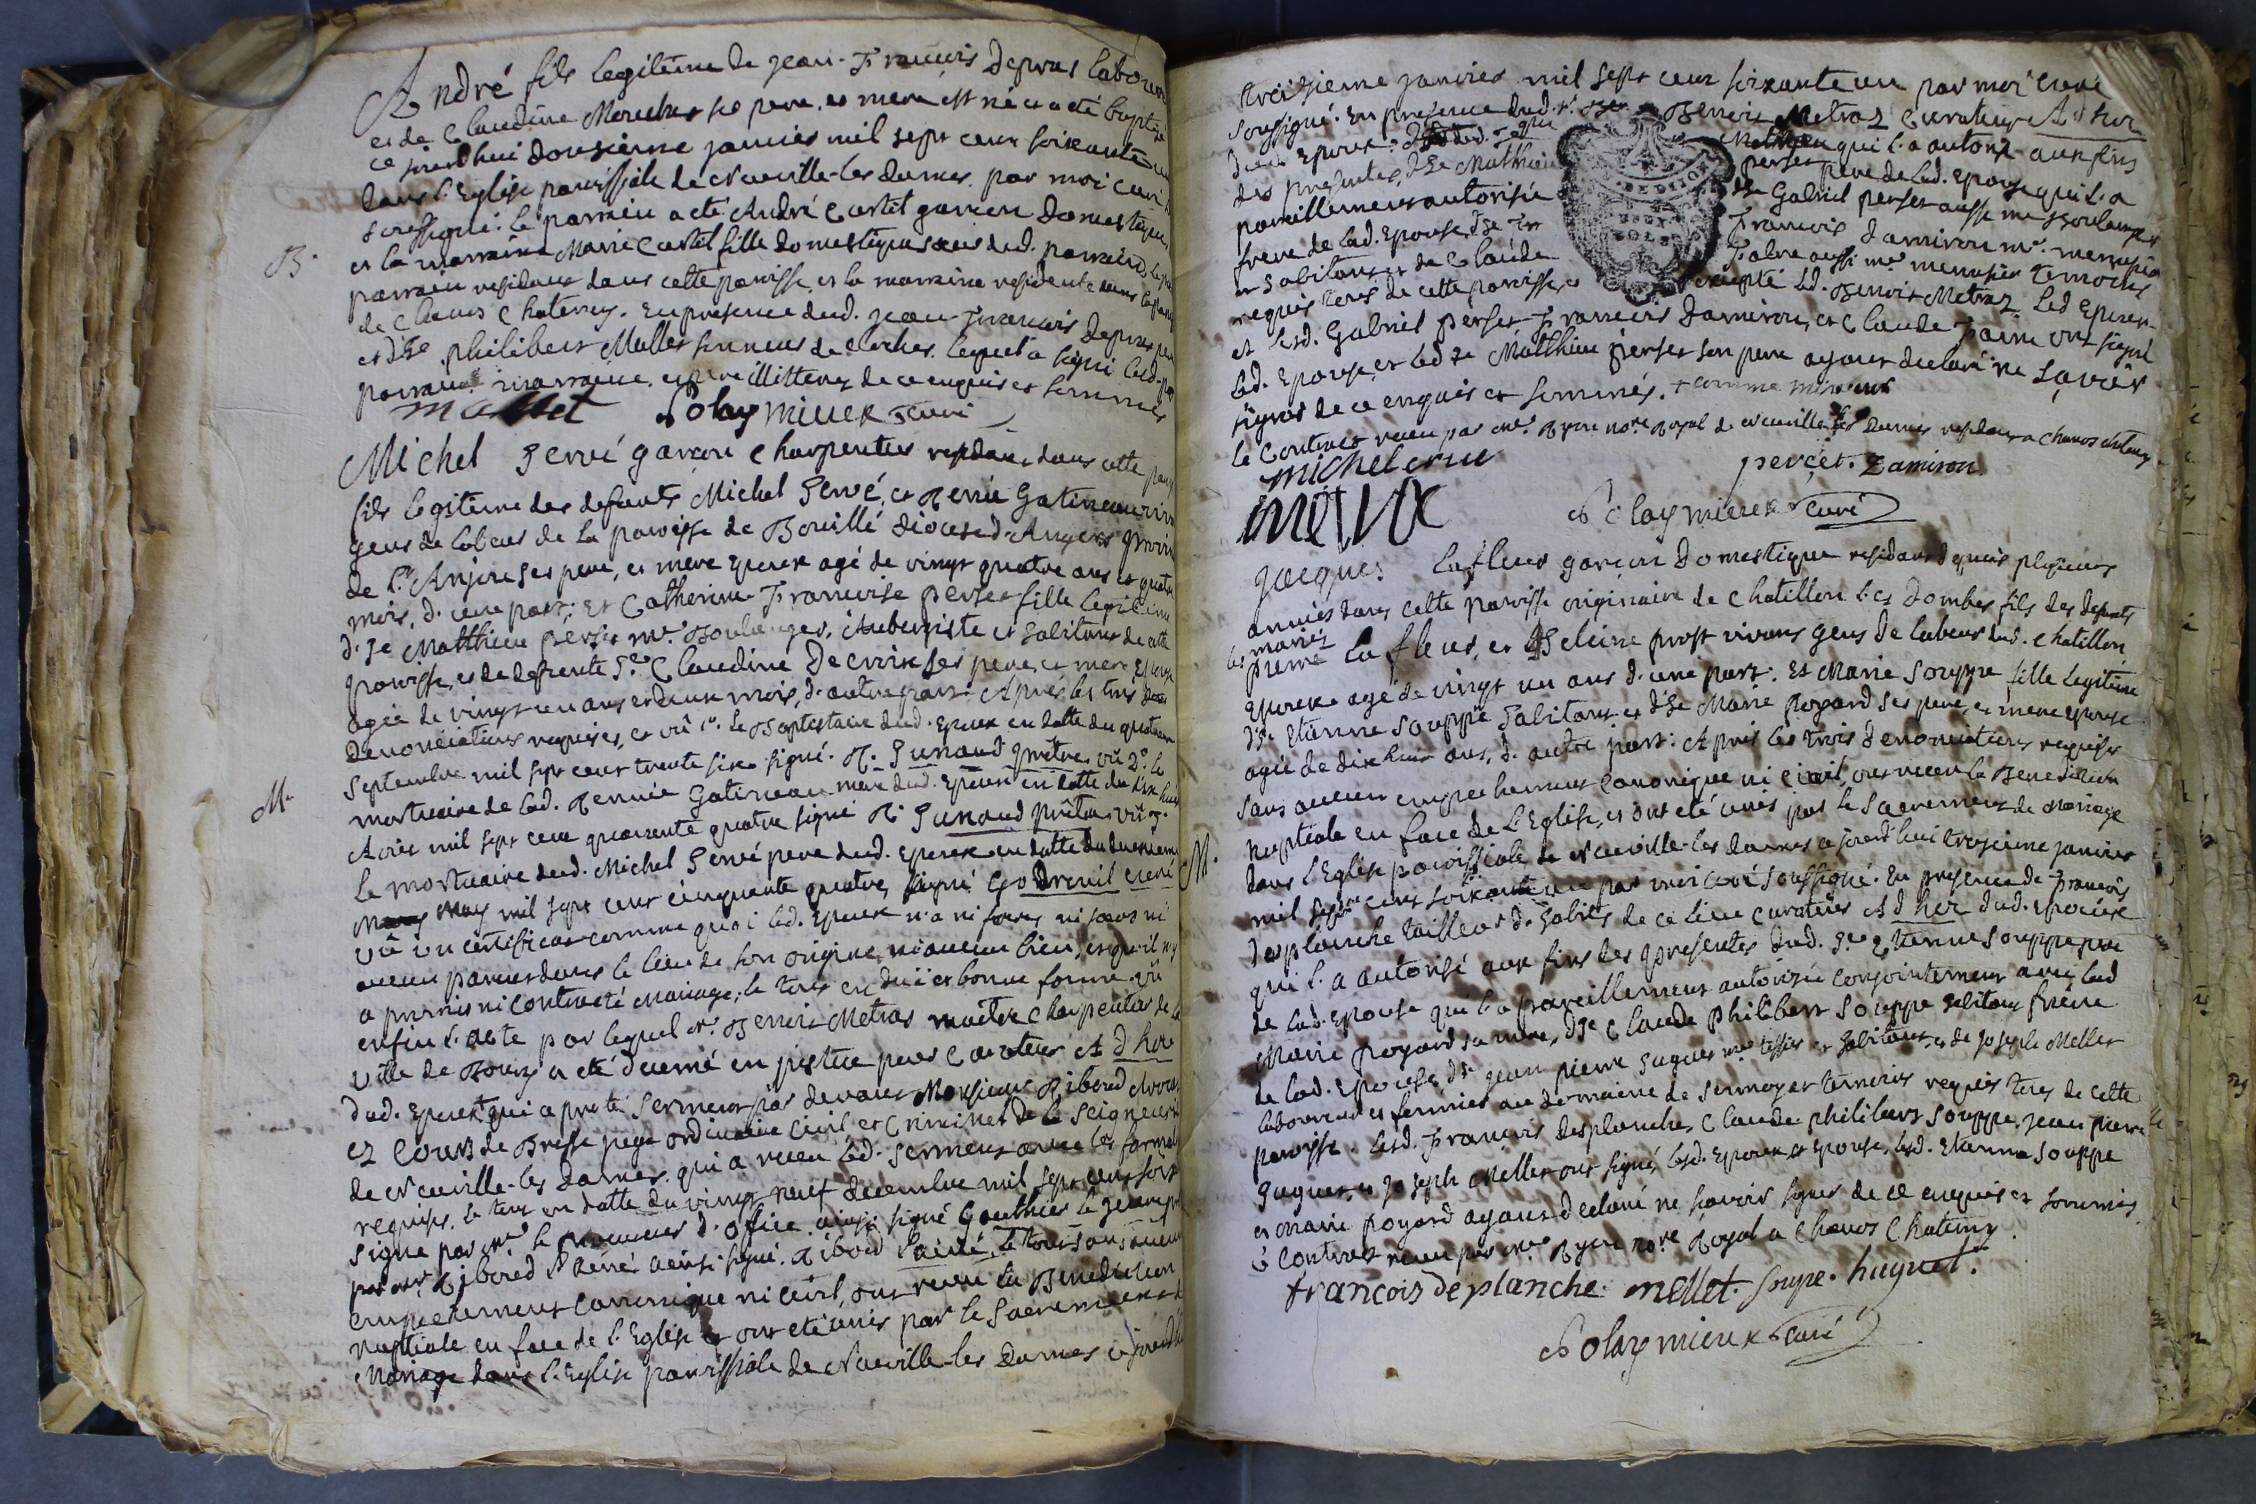 André fils legitime de jean-François Depras laboureur
et de Claudine Morechas ses pere, et mere est né et a eté baptisé
ce jourd'hui dousieme janvier mil sept cent soixante un
dans l'Eglise paroissiale de Neuville-les Dames par moi curé
soussigné. le parrain a eté André Castel garçon domestique
et la marraine Marie Castel fille domestique dud. parrain
parrain residant dans cette paroisse, et la marraine residente dans la
de Chanos Chatenay. En presence dud. jean François Depras pere
et de Philibert Mallet sonneur de cloches lequel a signé led.
parrain marraine, et pere illitteres de ce enquis et sommés
B.
mallet Polaymieux curé
Michel Servé garçon charpentier residant dans cette paroisse
fils legitime des defunts Michel Servé, et Renée Gatineau
gens de labeur de la paroisse de Bouillé diocese d'Angers province
de l'Anjou ses pere, et mere Epoux agé de vingt quatre ans et quatre
mois, d'une part; et Catherine Françoise Perset fille legitime
d. Sr Matthieu perset me. Boulanger, Aubergiste et habitant de cette
paroisse, et de defunte Claudine Decroix ses pere, et mere Epouse
agée de vingt un ans et deux mois, d'autre part: Après les trois
Denonciations requises, et vû 1º. le Baptistaire dud. Epoux en datte du quatorze
Septembre mil sept cent trente six signé. R. Sunaud prêtre vû 2º. le
mortuaire de lad. Renée Gatineau mere dud. Epoux en datte du dix huit
M.
Aoûst mil sept cent quarante quatre signé R. Sunaud prêtre vû 3º.
le mortuaire dud. Michel Servé pere dud. Epoux en datte du
may mil sept cent cinquante quatre, signé Godreuil curé
vû un certificat comme quoi led. Epoux n'a ni freres ni sœurs ni
aucun parent dans le lieu de son origine, ni aucun bien, et qu'il n'y
a promis ni contracté mariage; le tout en duë et bonne forme. vû
enfin l'acte par lequel Sr. Benoit Metras maître charpentier de la
ville de Bourg a eté decerné en justice pour curateur Ad hoc
dud. Epoux+ qui a preté serment par devant Monsieur Riboud Avocat
ez Cours de Bresse juge ordinaire civil et criminel de la Seigneurie
de Neuville-les Dames. qui a receu led. serment avec les formalités
requises. le tout en datte du vingt neuf decembre mil sept cent soixante
signé par Mr le procureur d'office ainsi signé Gauthier le jeune
par Mr Riboud Sr Reiné ainsi signé. Riboud Reiné, le tout sans aucun
empechement canonique ni civil, ont receu la Benediction
nuptiale en face de l'Eglise et ont eté unis par le Sacrement de
Mariage dans l'Eglise paroissiale de Neuville-les Dames ce jourd'hui
treizieme janvier mil sept cent soixante un par moi curé
soussigné. En presence dud. Sr. Benoit Metraz Curateur Ad hoc
dud. Epoux qui l'a autorisé aux fins
des presentes, de Sr Matthieu perset pere de lad. Epouse qui l'a
pareillement autorisée de Gabriel perset aussi me Boulanger
frere de lad. Epouse, de Sr François Damiron me. menusier
et habitant et de Claude Fabre aussi me menusier temoins
requis tous de cette paroisse, excepté led. Benoit Metraz. Led Epoux
et lesd. Gabriel perset François Damiron, et Claude Favre ont signé
lad. Epouse, et led Sr Matthieu perset son pere ayant declaré ne sçavoir
signer de ce enquis et sommés. + comme mineur
le Contract receu par me. Ryon nore. Royal de Neuville les Dames residant a Chanos Chatenay
michel serve percet. Damiron
Polaymieux curé
Jacques Lafleur garçon Domestique residant depuis plusieurs
années dans cette paroisse originaire de Chatillon les Dombes fils des defunts
les mariés
pierre Lafleur, et Heleine prost vivans gens de labeur dud. Chatillon
Epoux agé de vingt un ans d'une part: Et Marie Souppe fille legitime
d. Sr Etienne Souppe habitant et de Marie Poyard ses pere, et mere epouse
agée de dix huit ans, d'autre part: Après les trois denonciations requises
sans aucun empechement Canonique ni civil, ont receu la Benediction
nuptiale en face de l'Eglise, et ont eté unis par le Sacrement de Mariage
dans l'Eglise paroissiale de Neuville-les Dames ce jourd'hui treizieme janvier
M.
mil sept cent soixante un par moi curé soussigné. En presence de François
Desplanche tailleur d'habits de ce lieu curateur Ad hoc dud. Epoux
qui l'a autorisé aux fins des presentes dud. Sr Etienne Souppe pere
de lad. Epouse qui l'a pareillement autorisée conjointement avec lad
Marie poyard sa mere, de Sr Claude Philibert Souppe habitant frere
de lad. Epouse, de Sr jean pierre Huguet me tissier et habitant, et de Joseph Mellet
laboureur et fermier au domaine de Sermoyer temoins requis tous de cette
paroisse. Lesd. François Desplanche, Claude philibert Souppe, jean pierre
Huguet, et Joseph Mellet ont signé, lesd. Epoux et Epouse, lesd. Etienne Souppe
et Marie poyard ayant declaré ne sçavoir signer de ce enquis et sommés
le Contract receu par me. Ryon nore. Royal a Chanos Chatenay
francois deplanche. mellet. soupe. huguet.
Polaymieux curé